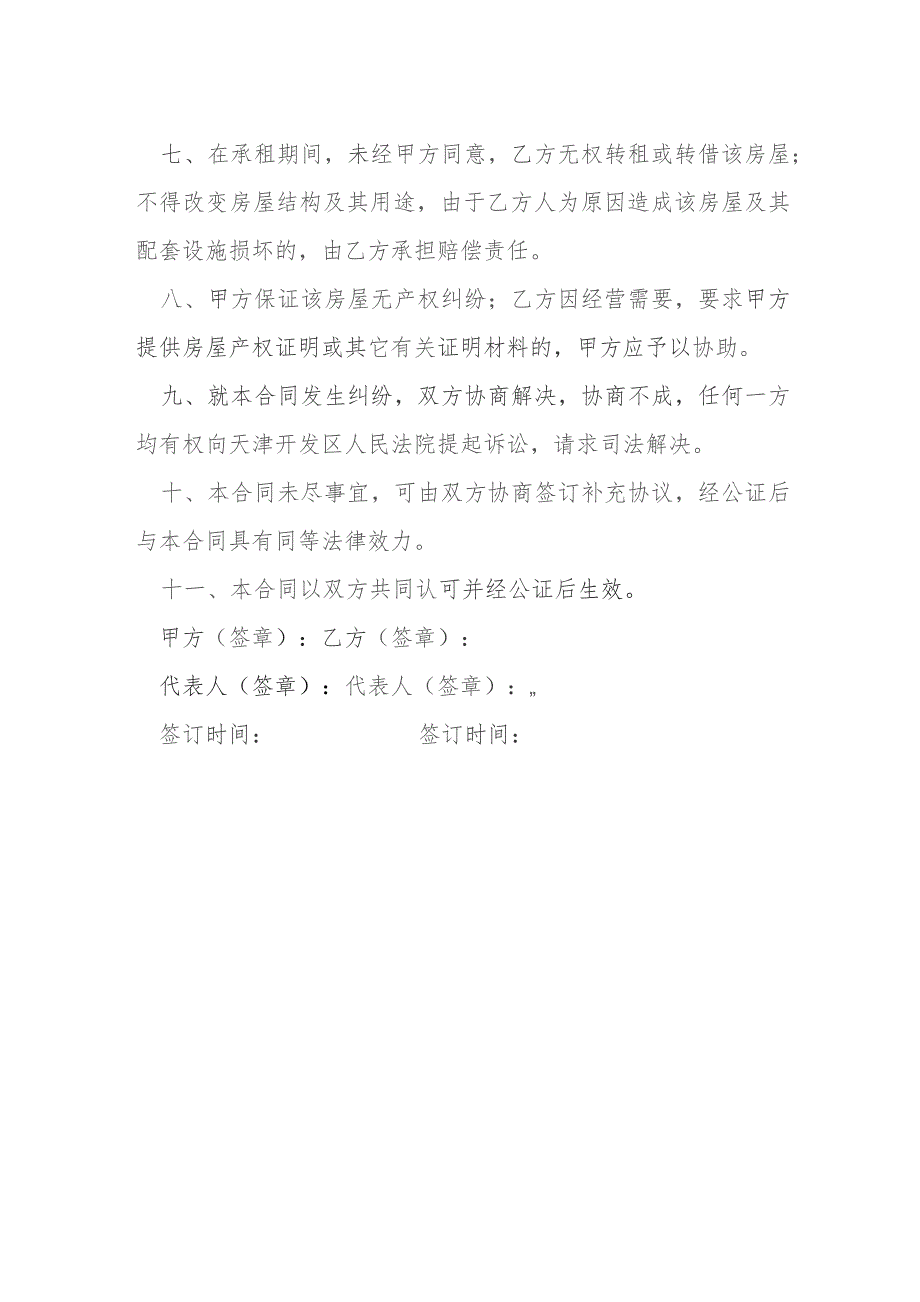 七、在承租期间，未经甲方同意，乙方无权转租或转借该房屋；
不得改变房屋结构及其用途，由于乙方人为原因造成该房屋及其
配套设施损坏的，由乙方承担赔偿责任。
八、甲方保证该房屋无产权纠纷；乙方因经营需要，要求甲方
提供房屋产权证明或其它有关证明材料的，甲方应予以协助。
九、就本合同发生纠纷，双方协商解决，协商不成，任何一方
均有权向天津开发区人民法院提起诉讼，请求司法解决。
十、本合同未尽事宜，可由双方协商签订补充协议，经公证后
与本合同具有同等法律效力。
十一、本合同以双方共同认可并经公证后生效。
甲方（签章）：乙方（签章）：
代表人（签章）：代表人（签章）：„
签订时间：　　　　　　签订时间：